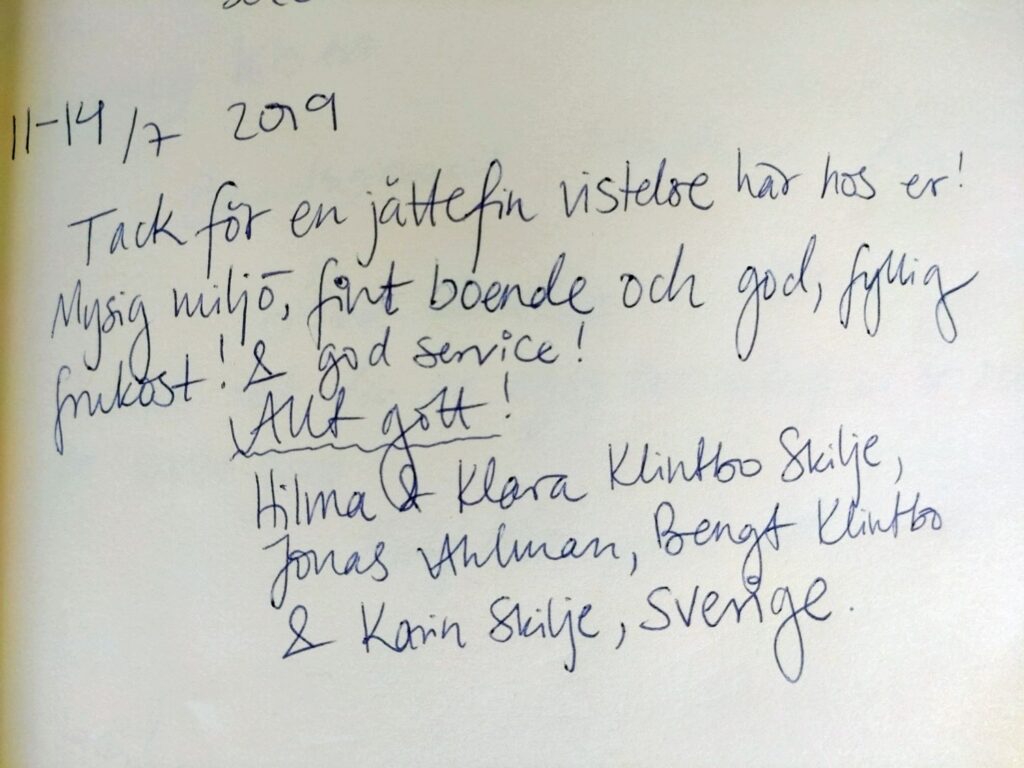 11-14/7 2019
Tack för en jättefin vistelse här hos er!
Mysig miljö, fint boende och god, fyllig
frukost! & god service!
Allt gott!
Hilma & Klara Klintbo Skilje,
Jonas Ahlman, Bengt Klintbo
& Karin Skilje, Sverige.